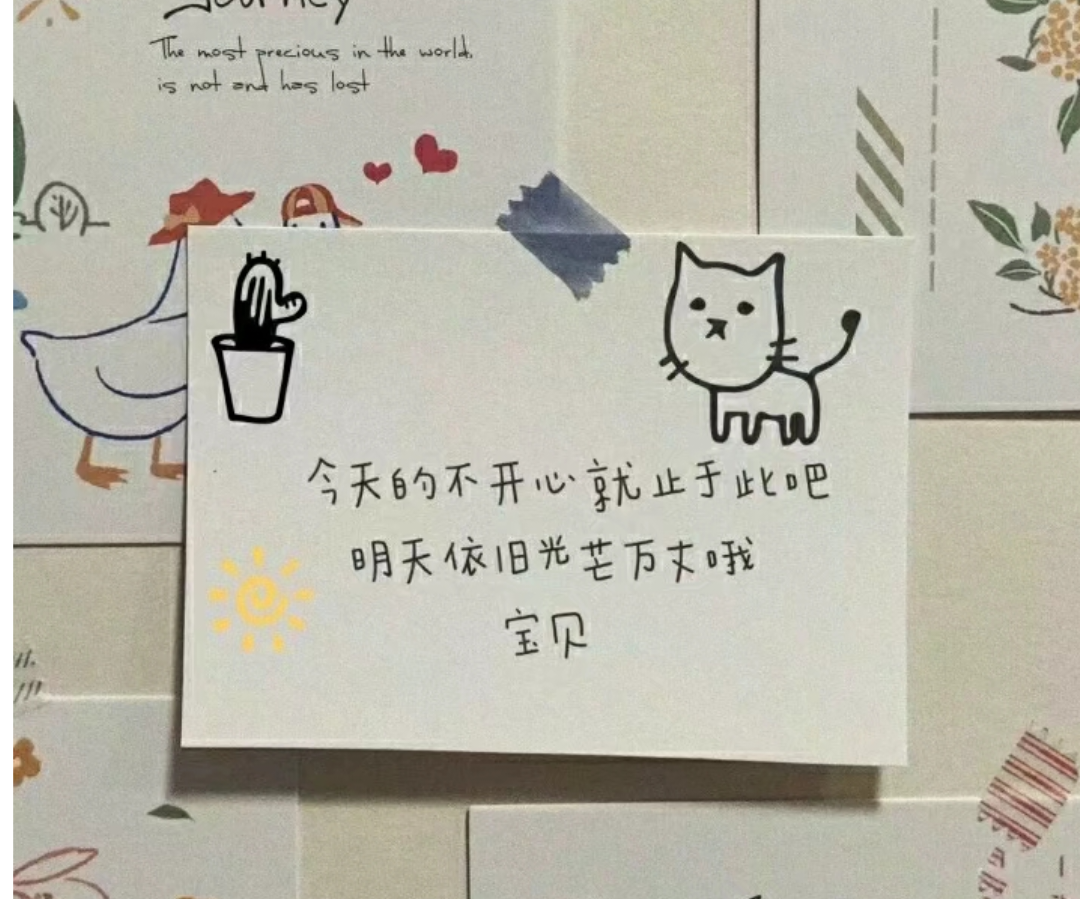 Journey
The most precious in the world,
is not and has lost
今天的不开心就止于此吧
明天依旧光芒万丈哦
宝贝